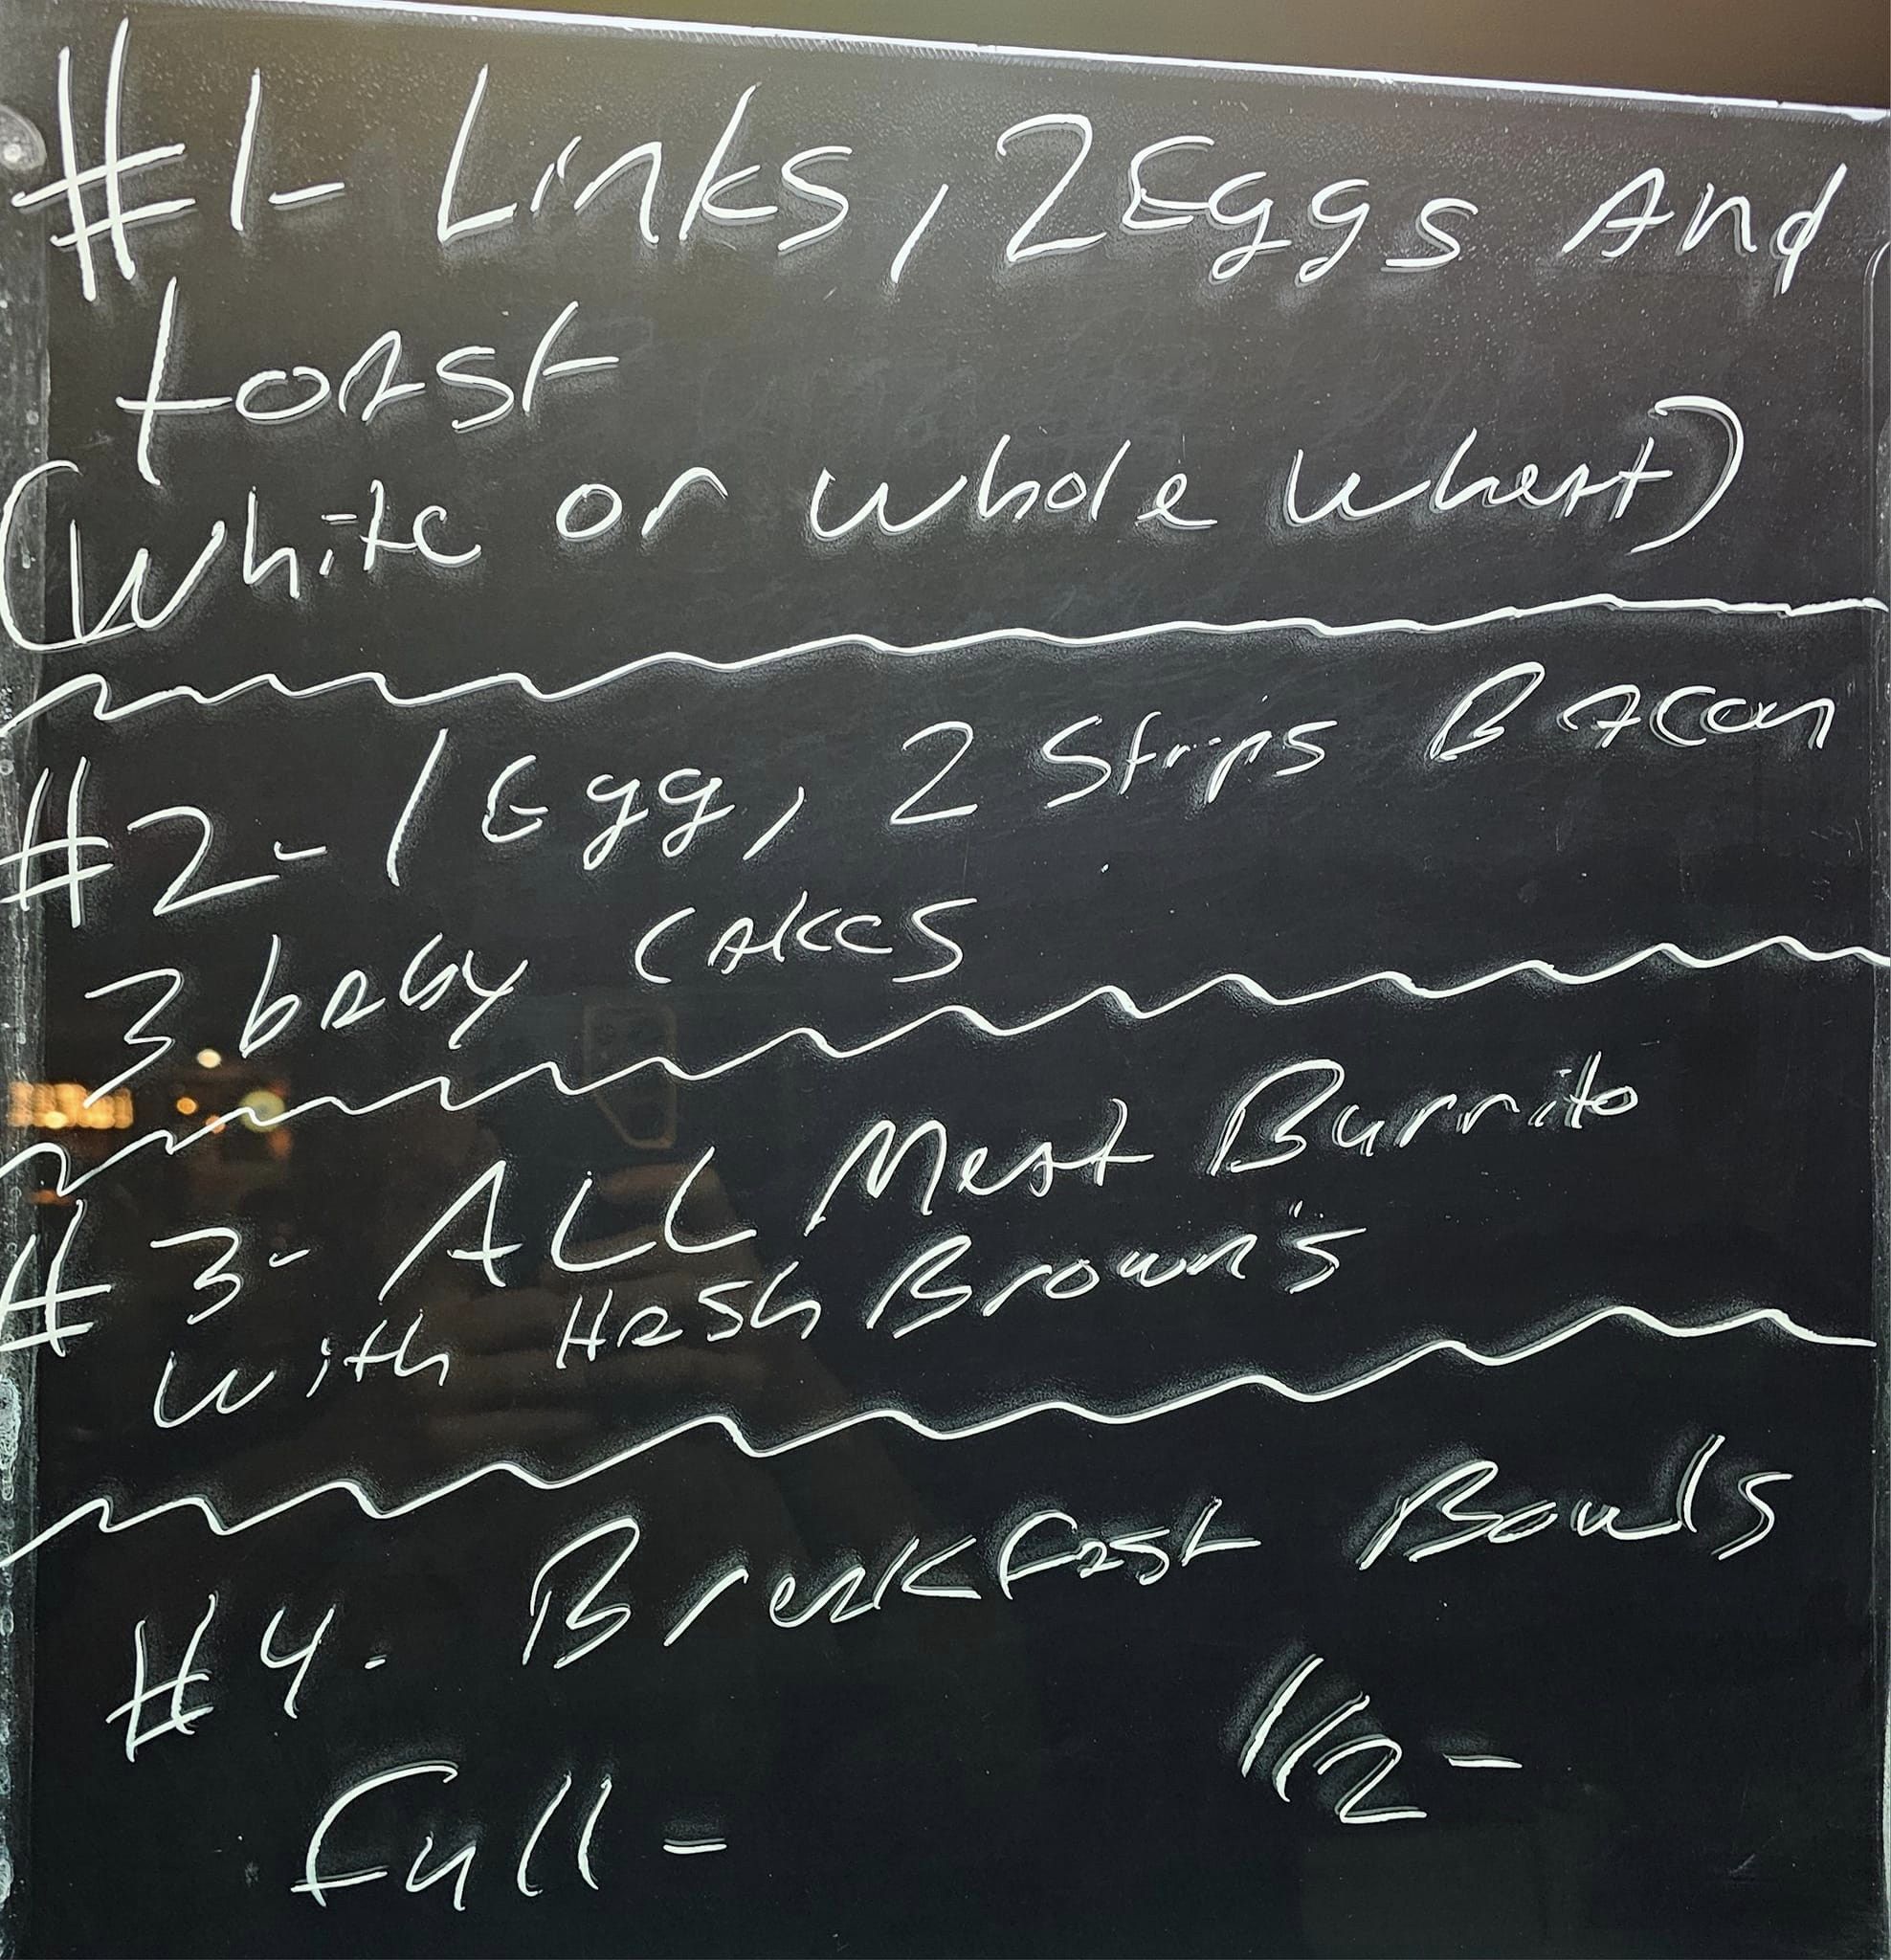 #1- Links, 2 Eggs And
toast
(White or whole wheat)
#2- 1 Egg, 2 Strips Bacon
3 baby cakes
#3- ALL Meat Burrito
with Hash Brown's
#4. Breakfast Bowls
Full - 1/2 -